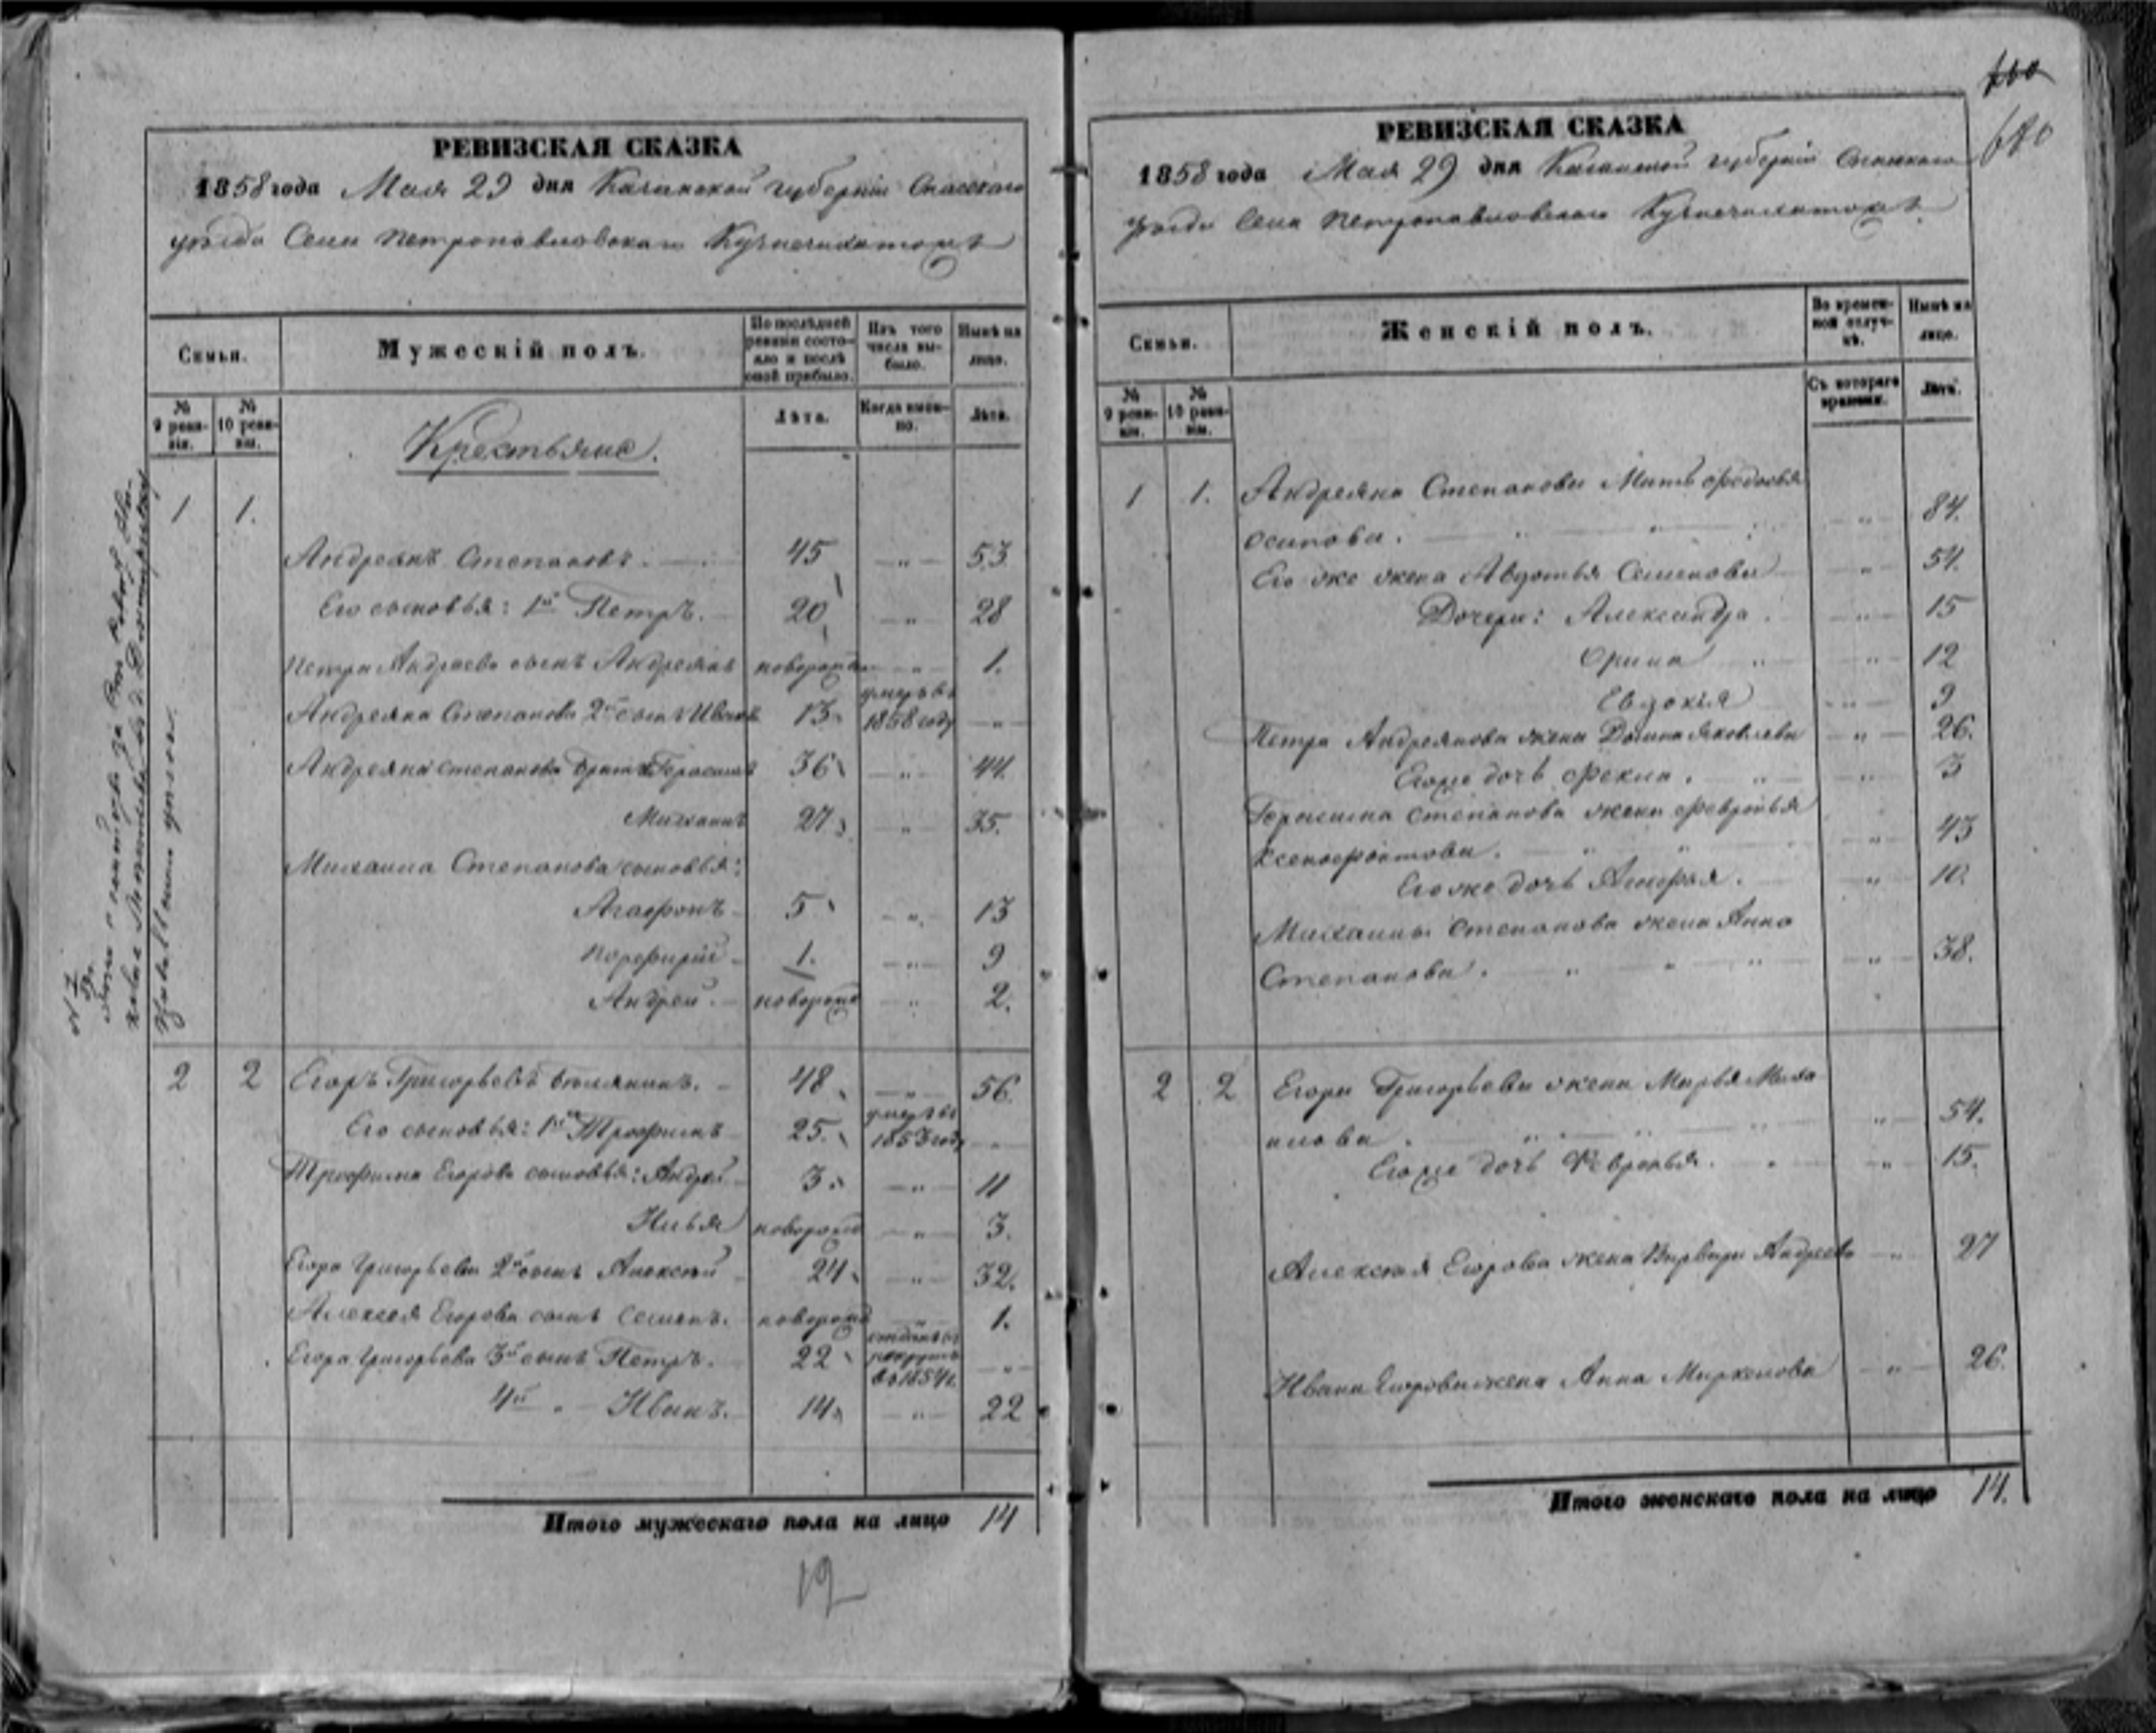 РЕВИЗСКАЯ СКАЗКА
1858 года Мая 29 дня Казанской губернiи Спасскаго
уѣзда Села Петропавловскаго
Семьи.
Мужескiй полъ.
По послѣдней ревизiи состояло и послѣ оной прибыло.
Изъ того числа выбыло.
Нынѣ на лицо.
№ 9 ревизiи.
№ 10 ревизiи.
Лѣта.
Когда именно.
Лѣта.
Крестьяне.
1 1.
Андреянъ Степановъ. 45 „ 53
Его сыновья: 1й Петръ. 20 „ 28
Петра Андреева сынъ Андреянъ новорожд „ 1.
Андреяна Степанова 2й сынъ Иванъ 13 умеръ въ 1858 году „
Андреяна Степанова братья Герасимъ 36 „ 44
Михаилъ 27 „ 35.
Михаила Степанова сыновья:
Агафонъ 5 „ 13
Порфирiй 1. „ 9
Андрей. новорожд „ 2.
2 2 Егоръ Григорьевъ 48 „ 56.
Его сыновья: 1й Трофимъ 25. умеръ въ 1853 году „
Трофима Егорова сыновья: Андрей 3 „ 11
Илья новорожд „ 3.
Егора Григорьева 2й сынъ Алексѣй 24 „ 32.
Алексея Егорова сынъ Семенъ. новорожд „ 1.
Егора Григорьева 3й сынъ Петръ. 22 въ рекруты въ 1854 г. „
4й „ Иванъ. 14 „ 22
Итого мужескаго пола на лицо 14
12
680
РЕВИЗСКАЯ СКАЗКА
1858 года Мая 29 дня Казанской губернiи Спасскаго
уѣзда Села Петропавловскаго
Семьи.
Женскiй полъ.
Во временной отлучкѣ.
Нынѣ на лицо.
№ 9 ревизiи.
№ 10 ревизiи.
Съ котораго времени.
Лѣта.
1 1. Андреяна Степанова Мать Федосья
Осипова. „ 84.
Его же жена Авдотья Семенова „ 54.
Дочери: Александра „ 15
Орина „ 12
Евдокiя „ 9
Петра Андреянова жена Домна Яковлева „ 26.
Егоже дочь Фекла. „ 3
Герасима Степанова жена Февронья
Ксенофонтова. „ 43
Его же дочь „ 10.
Михаилы Степанова жена Анна
Степанова. „ 38.
2 2 Егора Григорьева жена Марья Миха-
илова „ 54.
Егоже дочь Февронья. „ 15.
Алексея Егорова жена Варвара Андреева „ 27
Ивана Егорова жена Анна Маркелова „ 26.
Итого женскаго пола на лицо 14.